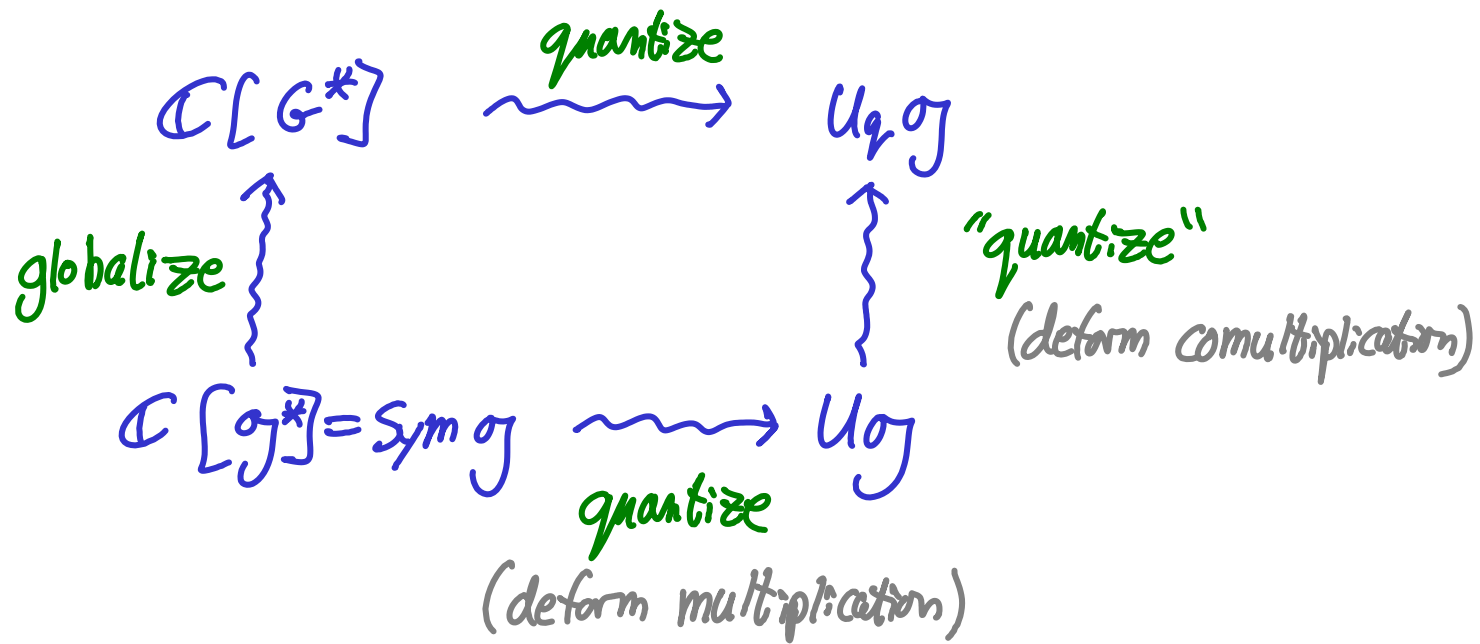 quantize
ℂ[G*] U_q 𝔤
globalize "quantize"
(deform comultiplication)
ℂ[𝔤*] = Sym 𝔤 U𝔤
quantize
(deform multiplication)